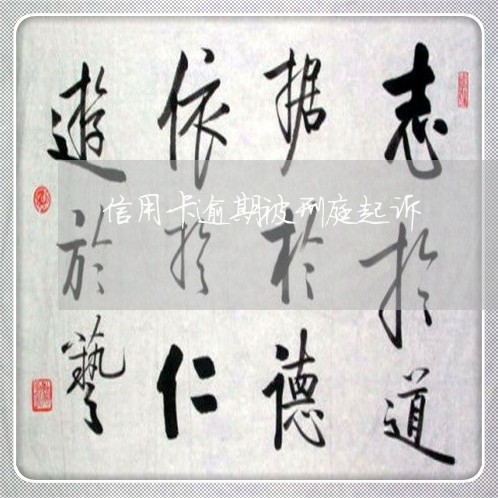 志於道
据於德
依於仁
遊於藝
信用卡逾期被刑庭起诉